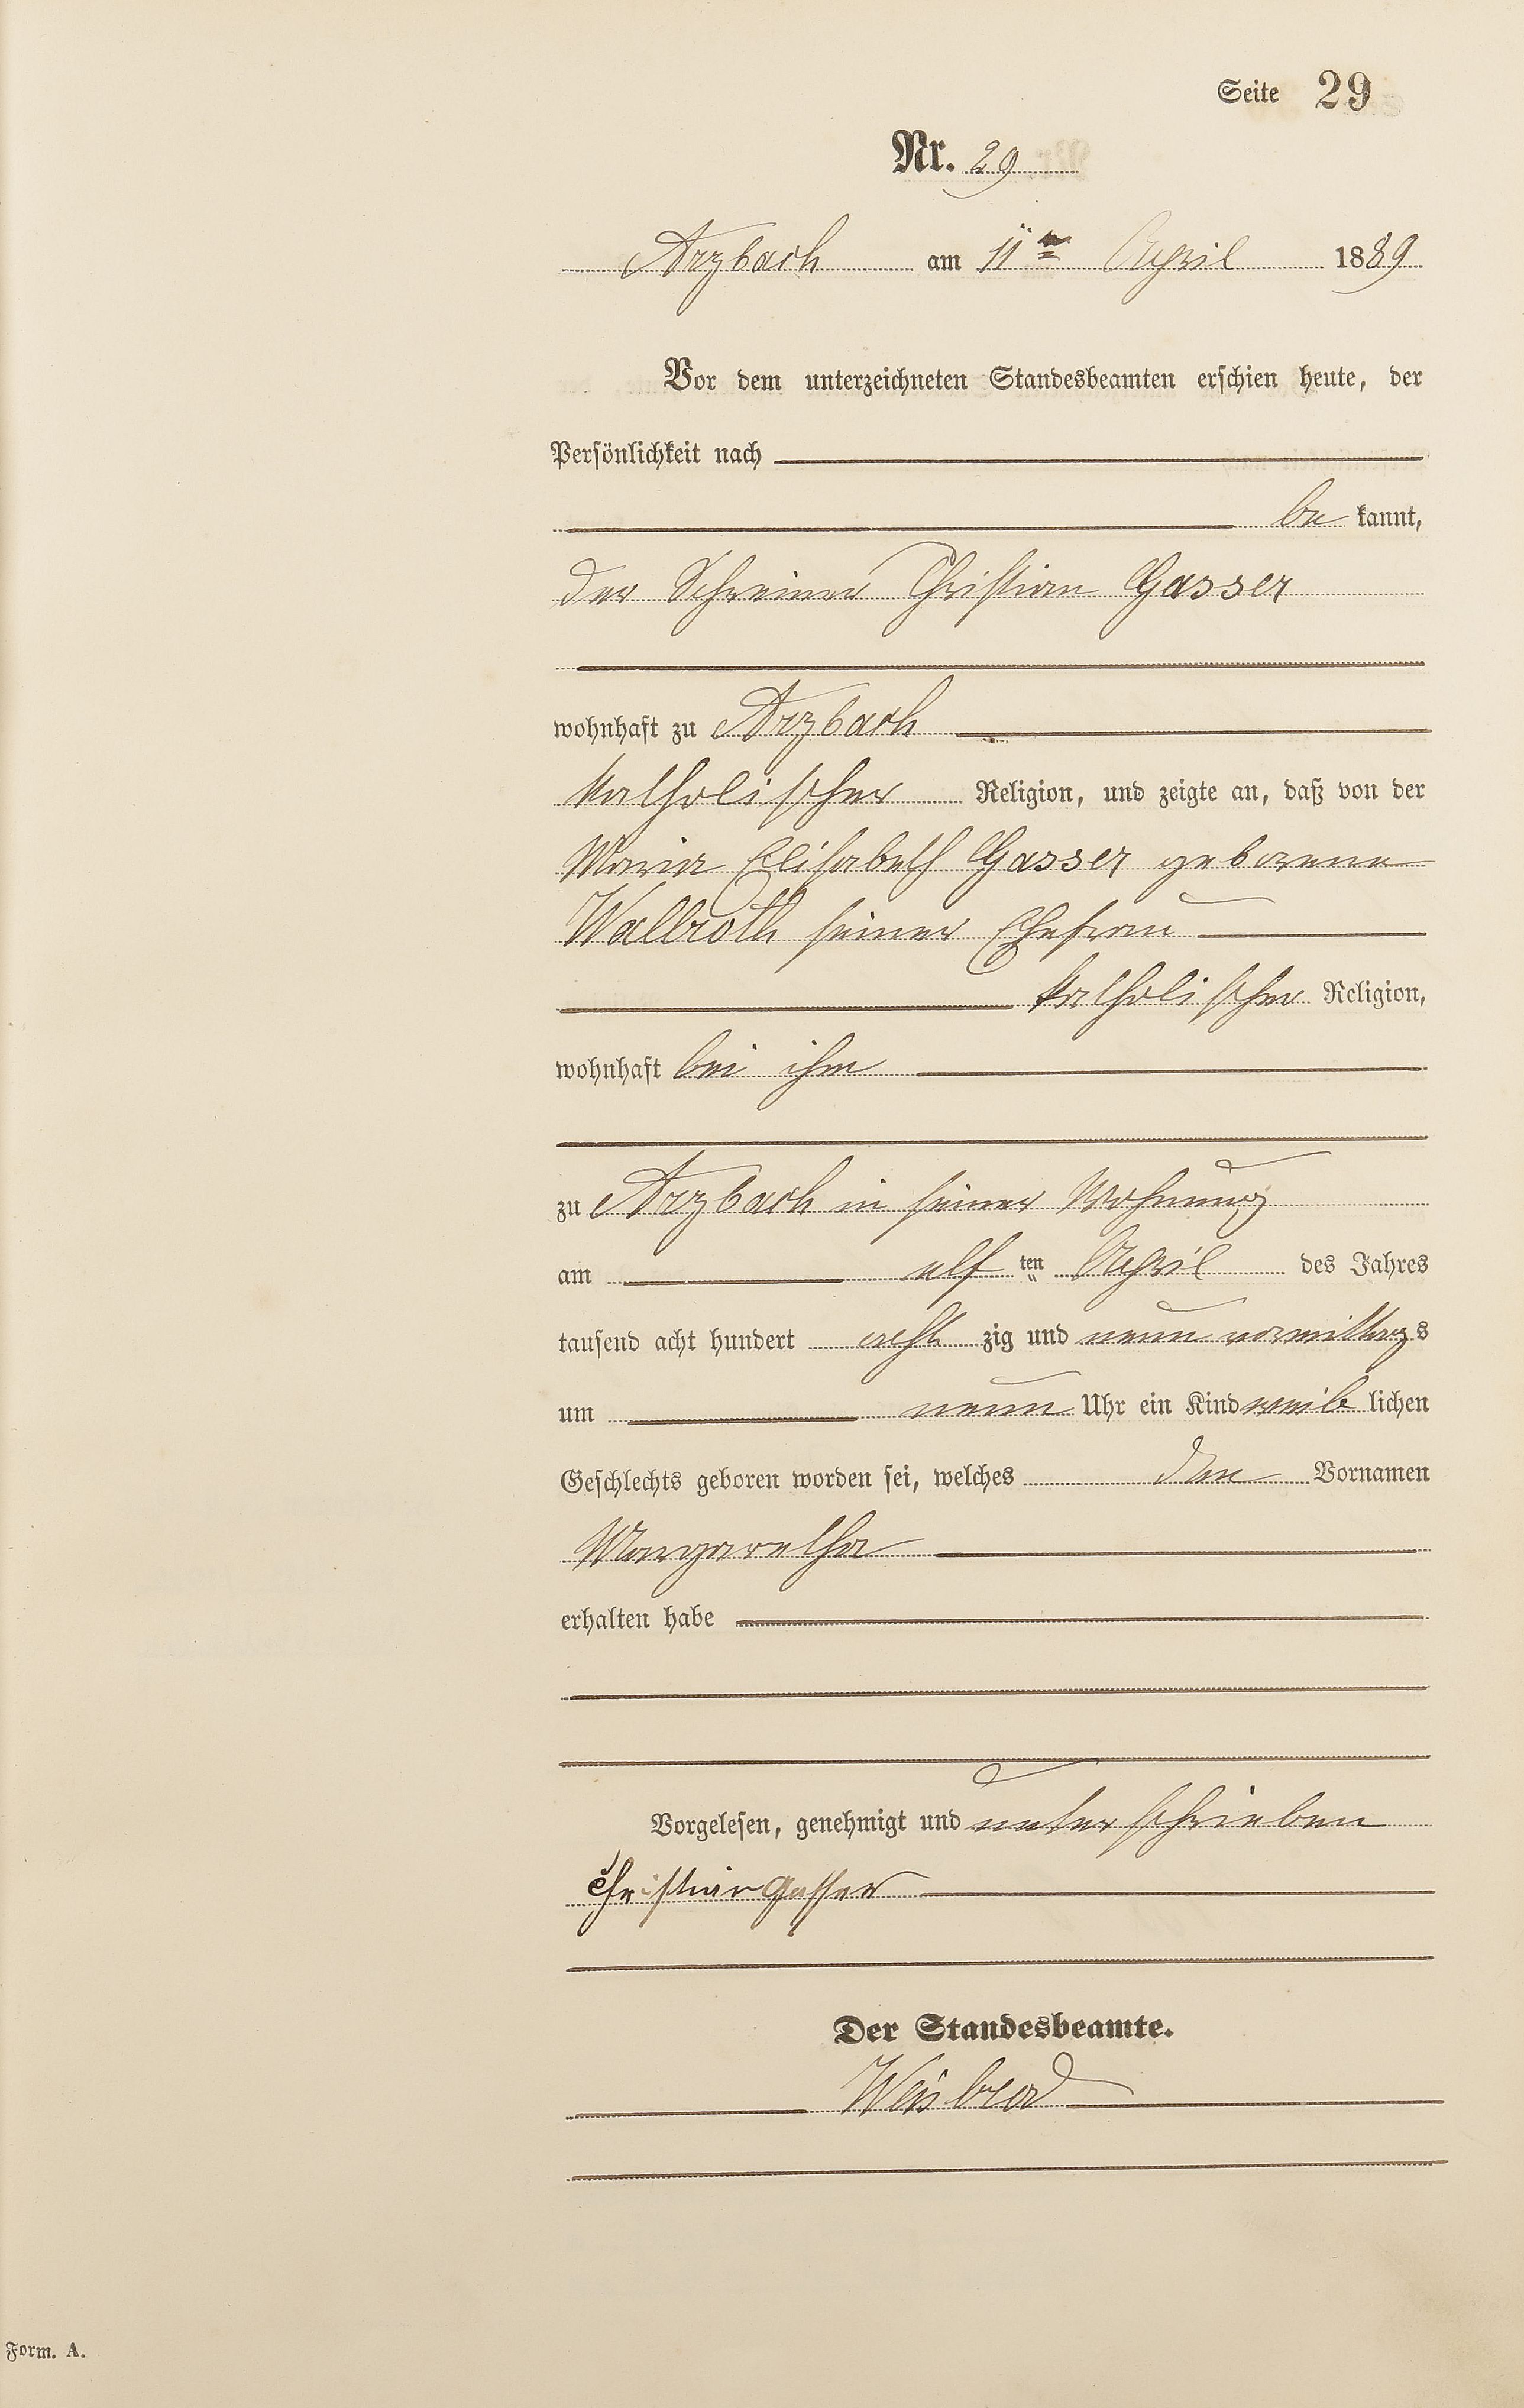 Seite 29
Nr. 29
Arzbach am 11ten April 1889
Vor dem unterzeichneten Standesbeamten erschien heute, der
Persönlichkeit nach
be kannt,
der Schreiner Christian Gasser
wohnhaft zu Arzbach
katholischer Religion, und zeigte an, daß von der
Maria Elisabeth Gasser geborene
Wallroth seiner Ehefrau
katholischer Religion,
wohnhaft bei ihm
zu Arzbach in seiner Wohnung
am elf ten April des Jahres
tausend acht hundert acht zig und neun vormittags
um neun Uhr ein Kind weib lichen
Geschlechts geboren worden sei, welches den Vornamen
Margaretha
erhalten habe
Vorgelesen, genehmigt und unterschrieben
Christian Gasser
Der Standesbeamte.
Weisbrod
Form. A.